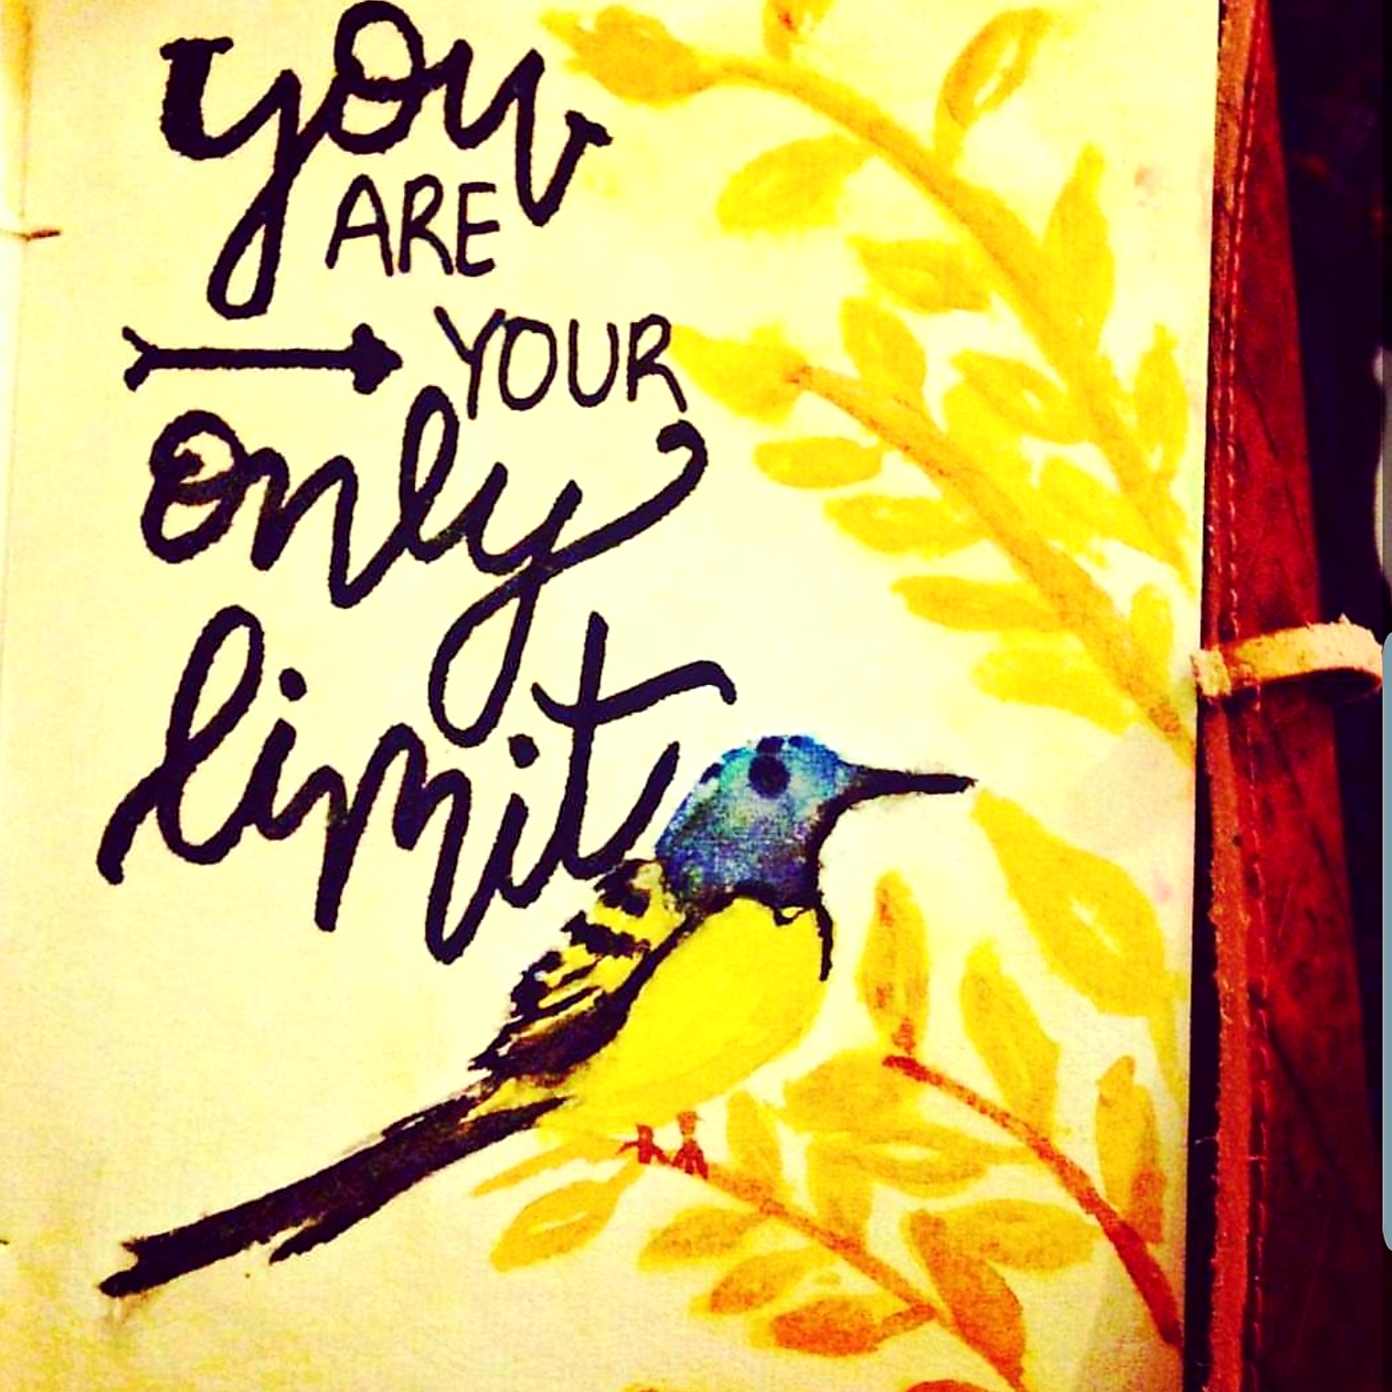 you
ARE
YOUR
only
limit